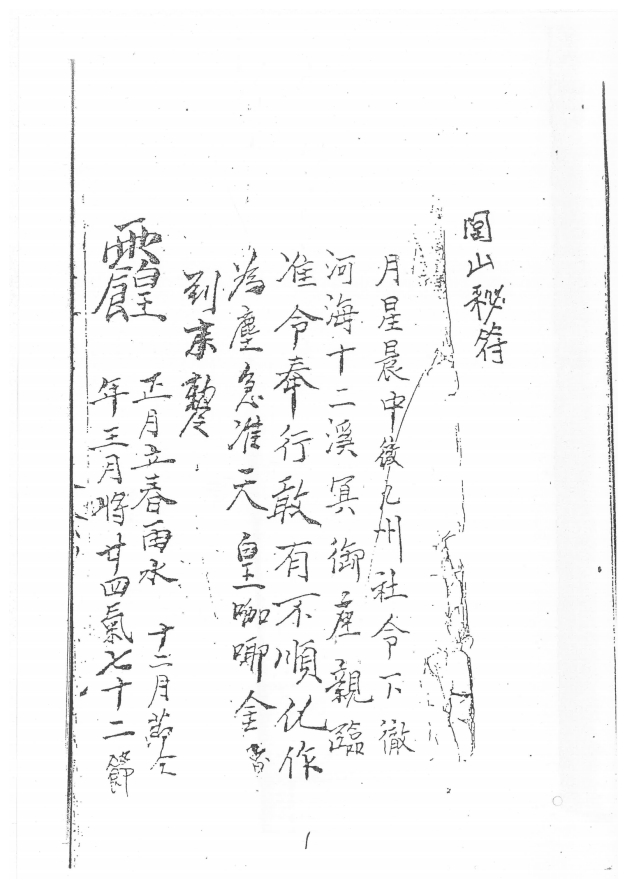 閭山秘符
月星晨中後九州社令下徹
河海十二溪冥御座親臨
准令奉行敢有不順化作
為塵急准天皇咖唧金
到奉勅令
正月立春雨水 十二月節令
年三月將廿四氣七十二節
1